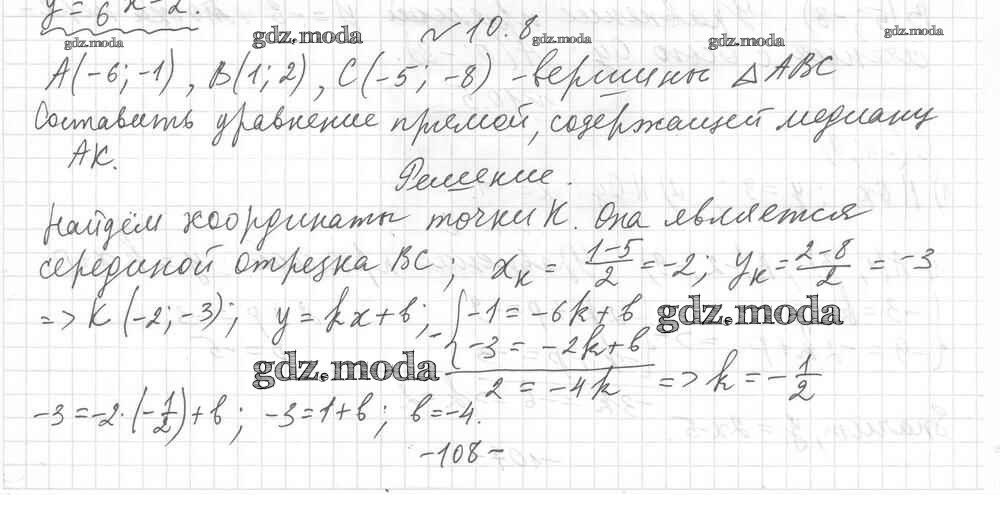 y = 6 x - 2.
gdz.moda gdz.moda № 10.8 gdz.moda gdz.moda gdz.moda
A(-6; -1), B(1; 2), C(-5; -8) - вершины △ABC
Составить уравнение прямой, содержащей медиану
AK.
Решение.
Найдём координаты точки K. Она является
серединой отрезка BC; x_K = (1-5)/2 = -2; y_K = (2-8)/2 = -3
=> K(-2; -3); y = kx + b; - { -1 = -6k + b gdz.moda
-3 = -2k + b
gdz.moda 2 = -4k => k = -1/2
-3 = -2·(-1/2) + b; -3 = 1 + b; b = -4.
-108-